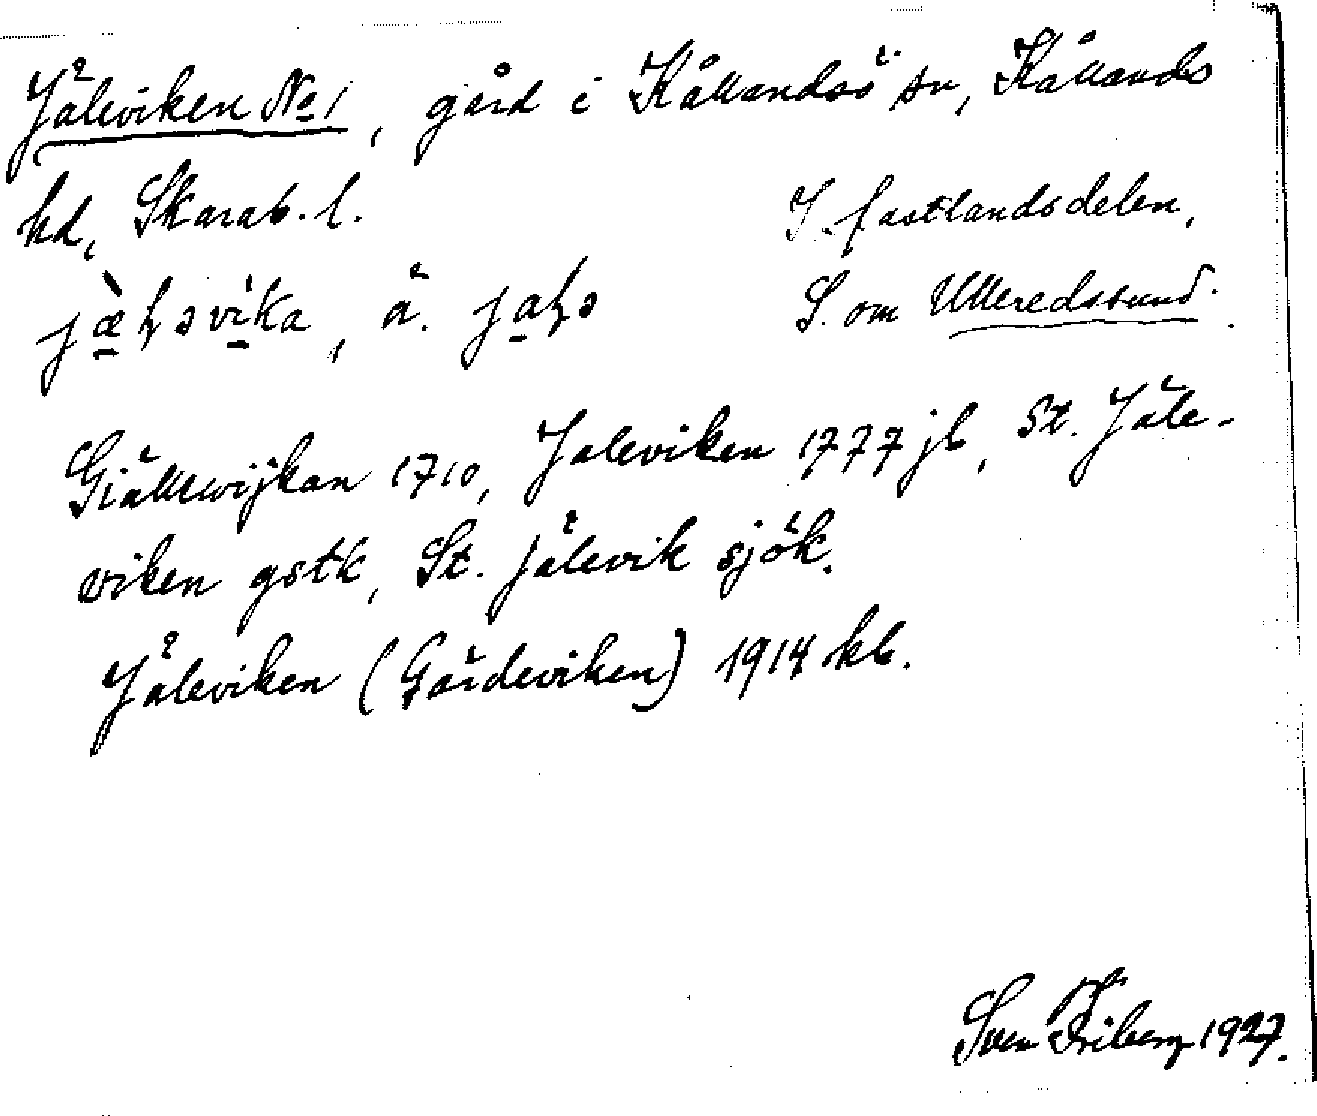 Jåleviken No 1, gård i Kållandsö sn, Kållands
hd, Skarab. l.
I fastlandsdelen,
S. om Ulleredssund.
Giällewijkan 1710, Jaleviken 1777 jb, St. Jäle-
viken gstk, St. Jälevik sjök.
Jåleviken (Gärdeviken) 1914 kb.
Sven Friberg 1927.